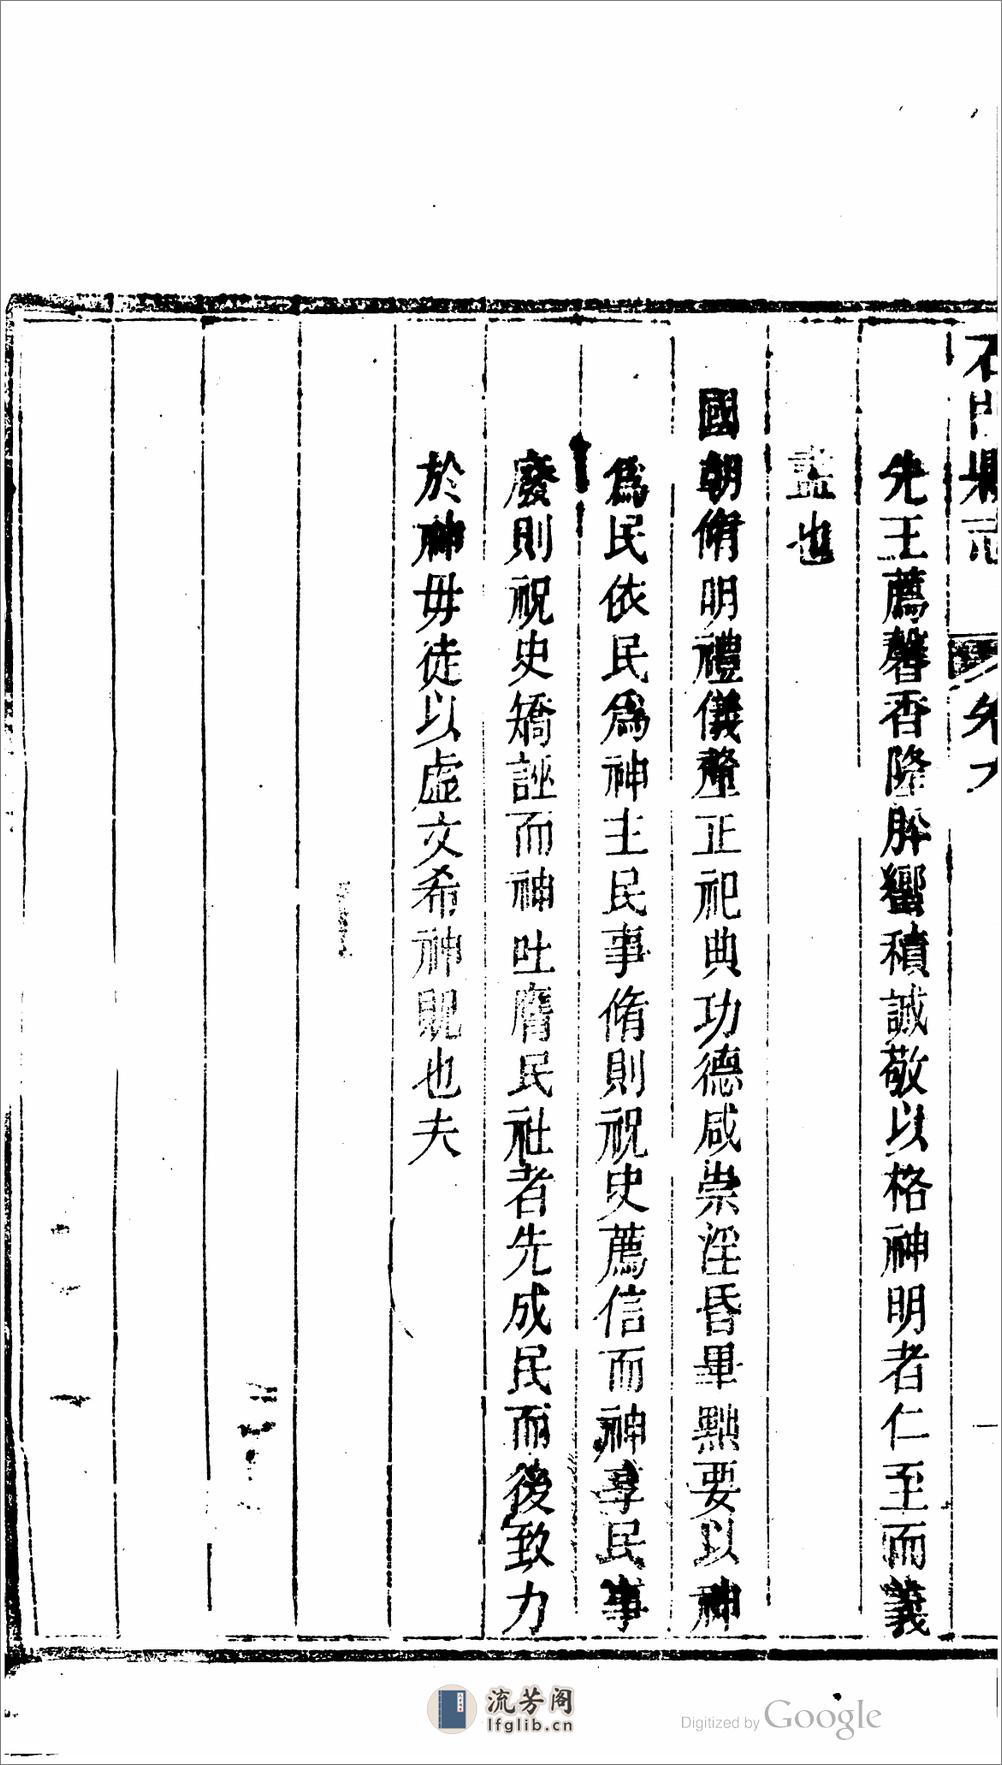 石門縣志 卷六 一
先王薦馨香隆肸蠁積誠敬以格神明者仁至而義
盡也
國朝脩明禮儀釐正祀典功德咸崇淫昏畢黜要以神
爲民依民爲神主民事脩則祝史薦信而神享民事
廢則祝史矯誣而神吐膺民社者先成民而後致力
於神毋徒以虛文希神貺也夫
流芳阁
lfglib.cn
Digitized by Google